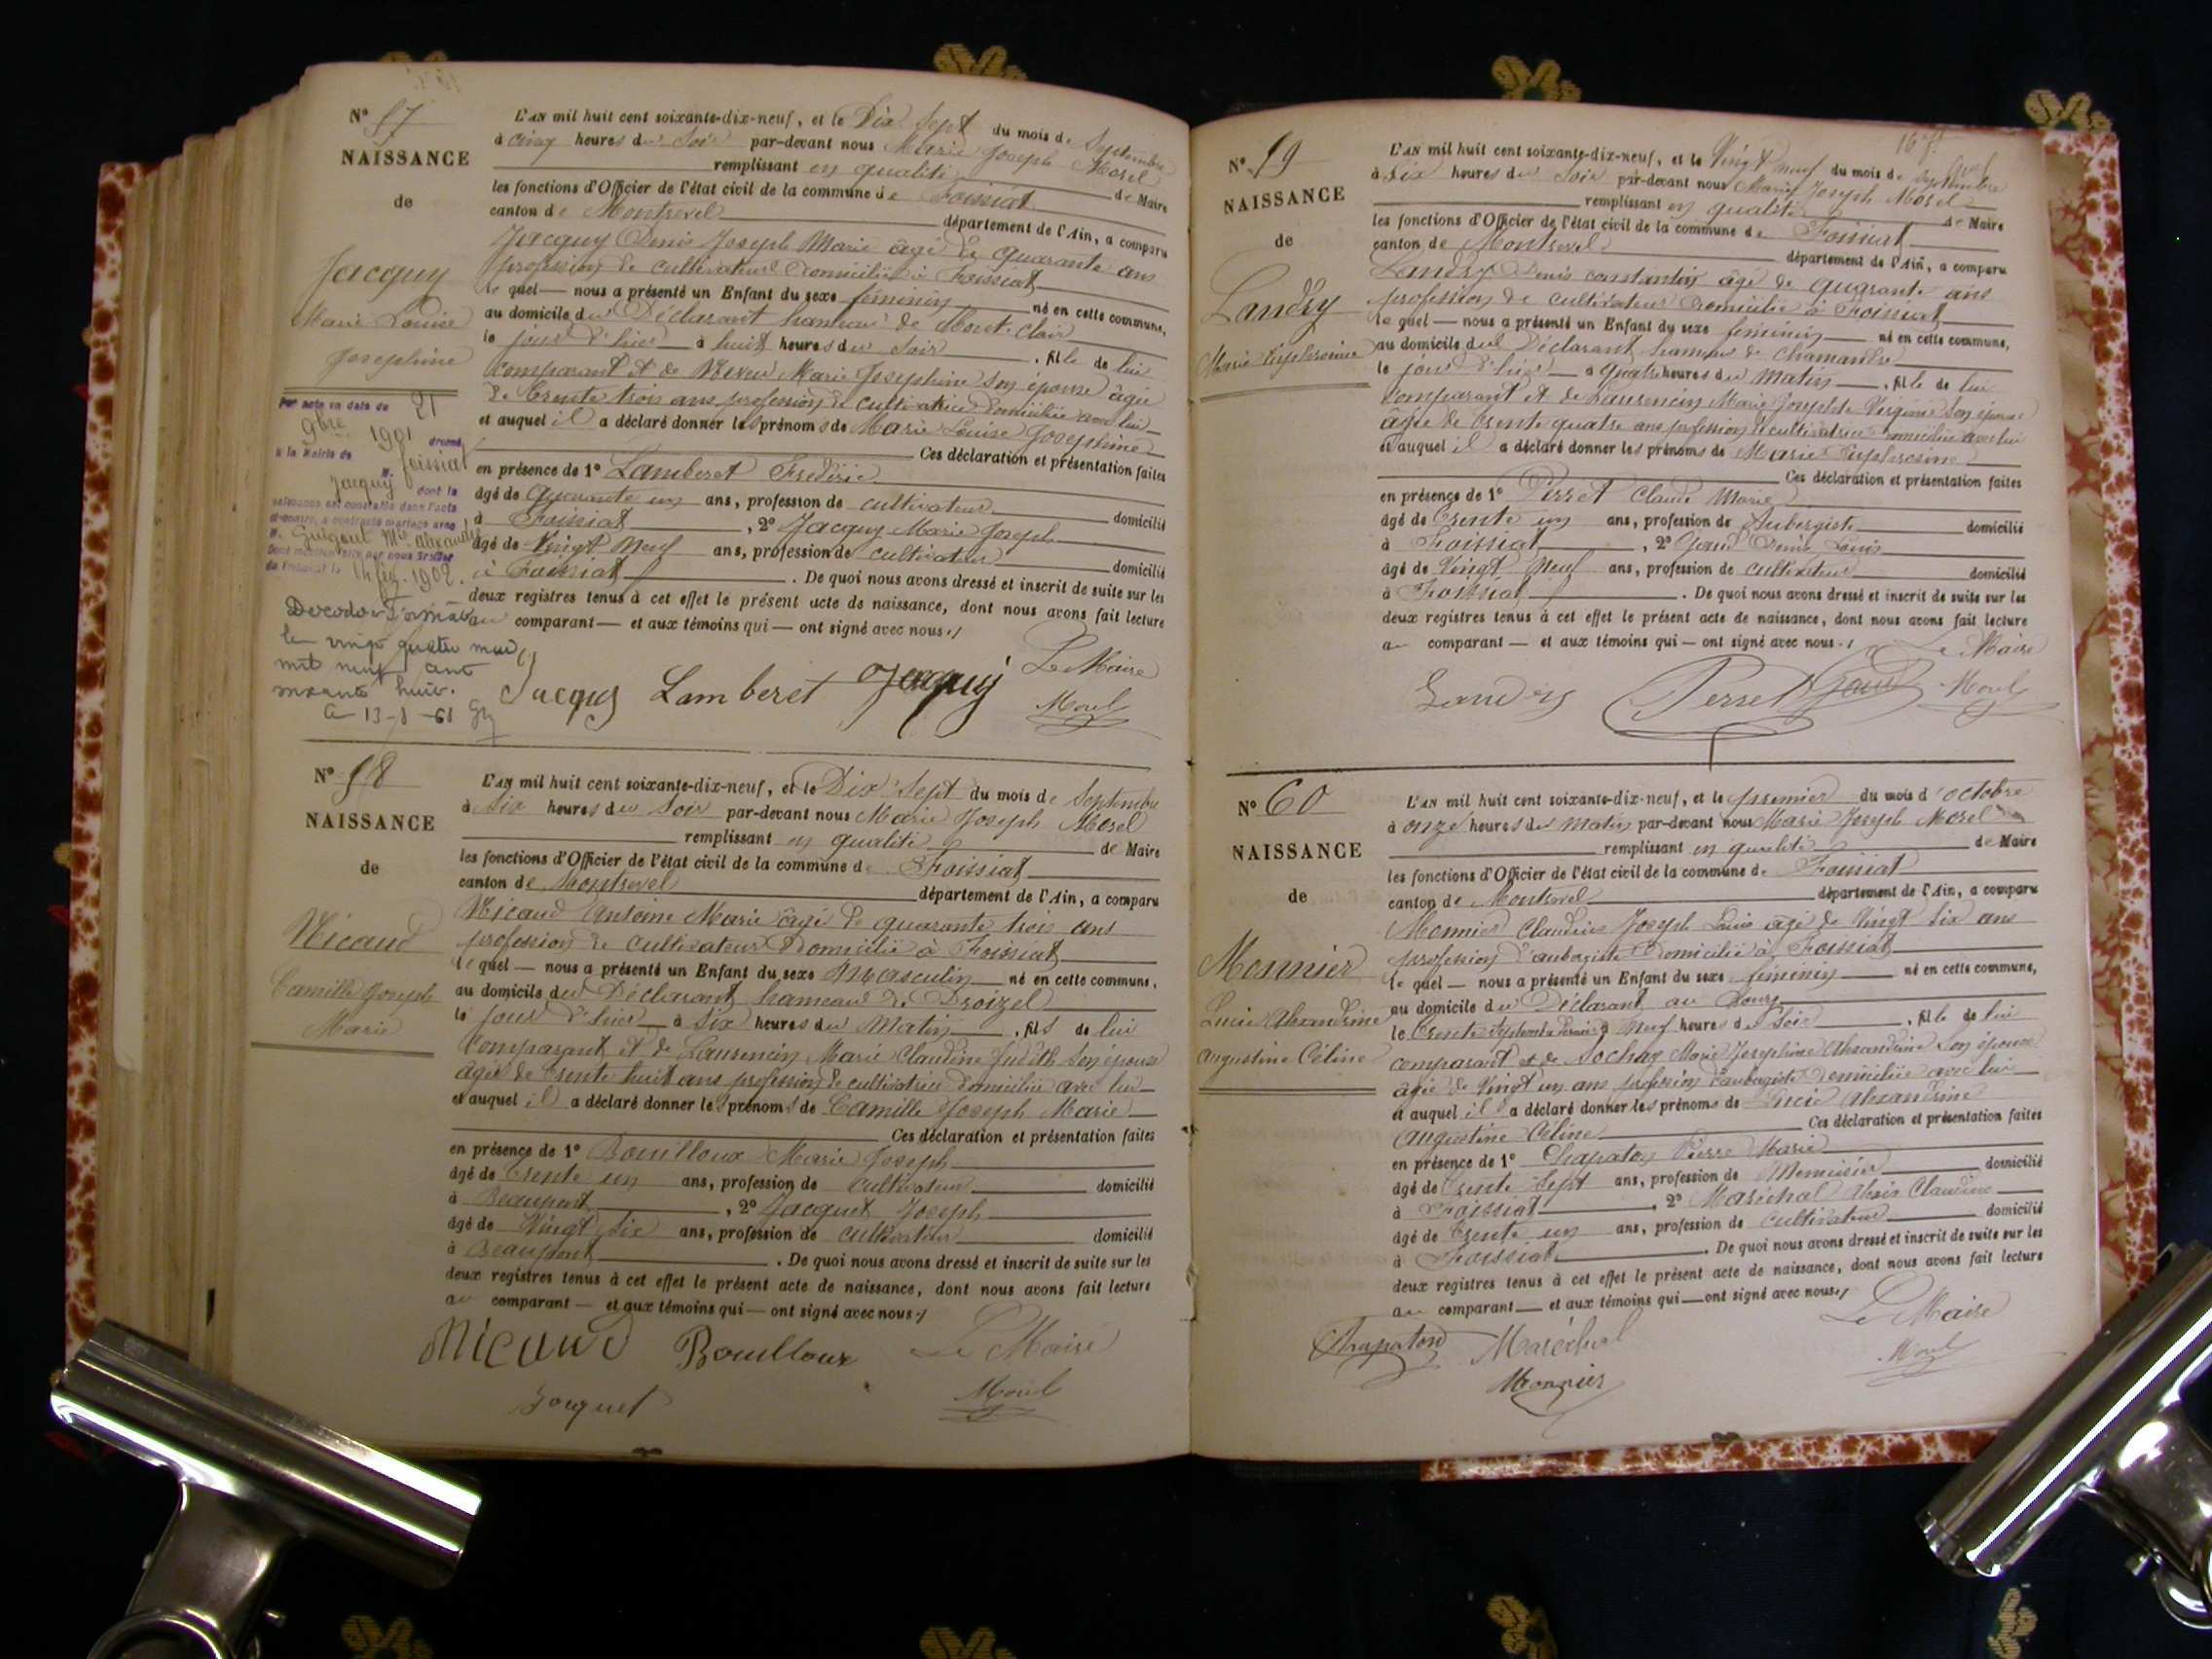 N° 57
NAISSANCE
de
Jacquy
Marie Louise
Josephine
Par acte en date du 21
9bre 1901 dressé
à la Mairie de foissiat
M. Jacquy dont la
naissance est constatée dans l'acte
ci-contre, a contracté mariage avec
M. Guigout Mie Alexandre
14 fév. 1902.
le vingt quatre mai
mil neuf cent
soixante huit.
L'AN mil huit cent soixante-dix-neuf, et le Dix Sept du mois de Septembre
à cinq heures du Soir par-devant nous Marie Joseph Morel
remplissant en qualité de Maire
les fonctions d'Officier de l'état civil de la commune de Foissiat
canton de Montrevel département de l'Ain, a comparu
Jacquy Denis Joseph Marie âgé de quarante ans
profession de cultivateur domicilié à Foissiat
le quel — nous a présenté un Enfant du sexe féminin né en cette commune,
au domicile du Déclarant hameau de Mont-Clair
le jour d'hier à huit heures du soir , fille de lui
comparant et de Neveu Marie Josephine son épouse âgée
de trente trois ans profession de cultivatrice domiciliée avec lui
et auquel il a déclaré donner les prénoms de Marie Louise Josephine
Ces déclaration et présentation faites
en présence de 1° Lamberet Frédéric
âgé de quarante un ans, profession de cultivateur domicilié
à Foissiat , 2° Jacquy Marie Joseph
âgé de Vingt Neuf ans, profession de cultivateur domicilié
à Foissiat . De quoi nous avons dressé et inscrit de suite sur les
deux registres tenus à cet effet le présent acte de naissance, dont nous avons fait lecture
au comparant — et aux témoins qui — ont signé avec nous ./
Le Maire
Jacquy Lamberet Jacquy Morel
N° 58
NAISSANCE
de
Nicaud
Camille Joseph
Marie
L'AN mil huit cent soixante-dix-neuf, et le Dix Sept du mois de Septembre
à Six heures du Soir par-devant nous Marie Joseph Morel
remplissant en qualité de Maire
les fonctions d'Officier de l'état civil de la commune de Foissiat
canton de Montrevel département de l'Ain, a comparu
Nicaud Antoine Marie âgé de quarante trois ans
profession de cultivateur Domicilié à Foissiat
le quel — nous a présenté un Enfant du sexe Masculin né en cette commune,
au domicile du Déclarant hameau de Broizel
le jour d'hier à Six heures du Matin , fils de lui
comparant et de Laurencin Marie Claudine Judith Son épouse
âgée de trente huit ans profession de cultivatrice domiciliée avec lui
et auquel il a déclaré donner les prénoms de Camille Joseph Marie
Ces déclaration et présentation faites
en présence de 1° Bouilloux Marie Joseph
âgé de trente un ans, profession de cultivateur domicilié
à Beaupont , 2° Jacquet Joseph
âgé de Vingt Six ans, profession de cultivateur domicilié
à Beaupont . De quoi nous avons dressé et inscrit de suite sur les
deux registres tenus à cet effet le présent acte de naissance, dont nous avons fait lecture
au comparant — et aux témoins qui — ont signé avec nous ./
Nicaud Bouilloux Le Maire
Jacquet Morel
N° 59
NAISSANCE
de
Landry
Marie Euphrosine
L'AN mil huit cent soixante-dix-neuf, et le Vingt neuf du mois de Septembre
à Six heures du Soir par-devant nous Marie Joseph Morel
remplissant en qualité de Maire
les fonctions d'Officier de l'état civil de la commune de Foissiat
canton de Montrevel département de l'Ain, a comparu
Landry Denis constantin âgé de quarante ans
profession de cultivateur Domicilié à Foissiat
le quel — nous a présenté un Enfant du sexe féminin né en cette commune,
au domicile du Déclarant hameau de Chamandre
le jour d'hier à quatre heures du Matin , fille de lui
comparant et de Laurencin Marie Virginie Son épouse
âgée de trente quatre ans profession de cultivatrice domiciliée avec lui
et auquel il a déclaré donner les prénoms de Marie Euphrosine
Ces déclaration et présentation faites
en présence de 1° Perret Claude Marie
âgé de trente un ans, profession de Aubergiste domicilié
à Foissiat , 2° Denis Louis
âgé de Vingt Neuf ans, profession de cultivateur domicilié
à Foissiat . De quoi nous avons dressé et inscrit de suite sur les
deux registres tenus à cet effet le présent acte de naissance, dont nous avons fait lecture
au comparant — et aux témoins qui — ont signé avec nous ./
Le Maire
Landry Perret Morel
N° 60
NAISSANCE
de
Monnier
Lucie Alexandrine
Augustine Céline
L'AN mil huit cent soixante-dix-neuf, et le premier du mois d'octobre
à onze heures du Matin par-devant nous Marie Joseph Morel
remplissant en qualité de Maire
les fonctions d'Officier de l'état civil de la commune de Foissiat
canton de Montrevel département de l'Ain, a comparu
Monnier Claudius Joseph Louis âgé de Vingt Six ans
profession d'aubergiste Domicilié à Foissiat
le quel — nous a présenté un Enfant du sexe féminin né en cette commune,
au domicile du Déclarant au Bourg
le trente Septembre dernier à Neuf heures du Soir , fille de lui
comparant et de Sochay Marie Josephine Alexandrine Son épouse
âgée de Vingt un ans profession d'aubergiste Domiciliée avec lui
et auquel il a déclaré donner les prénoms de Lucie Alexandrine
Augustine Céline Ces déclaration et présentation faites
en présence de 1° Chapaton Pierre Marie
âgé de trente Sept ans, profession de Menuisier domicilié
à Foissiat , 2° Maréchal Alexis Claudine
âgé de trente un ans, profession de cultivateur domicilié
à Foissiat . De quoi nous avons dressé et inscrit de suite sur les
deux registres tenus à cet effet le présent acte de naissance, dont nous avons fait lecture
au comparant — et aux témoins qui — ont signé avec nous ./
Le Maire
Chapaton Maréchal Morel
Monnier